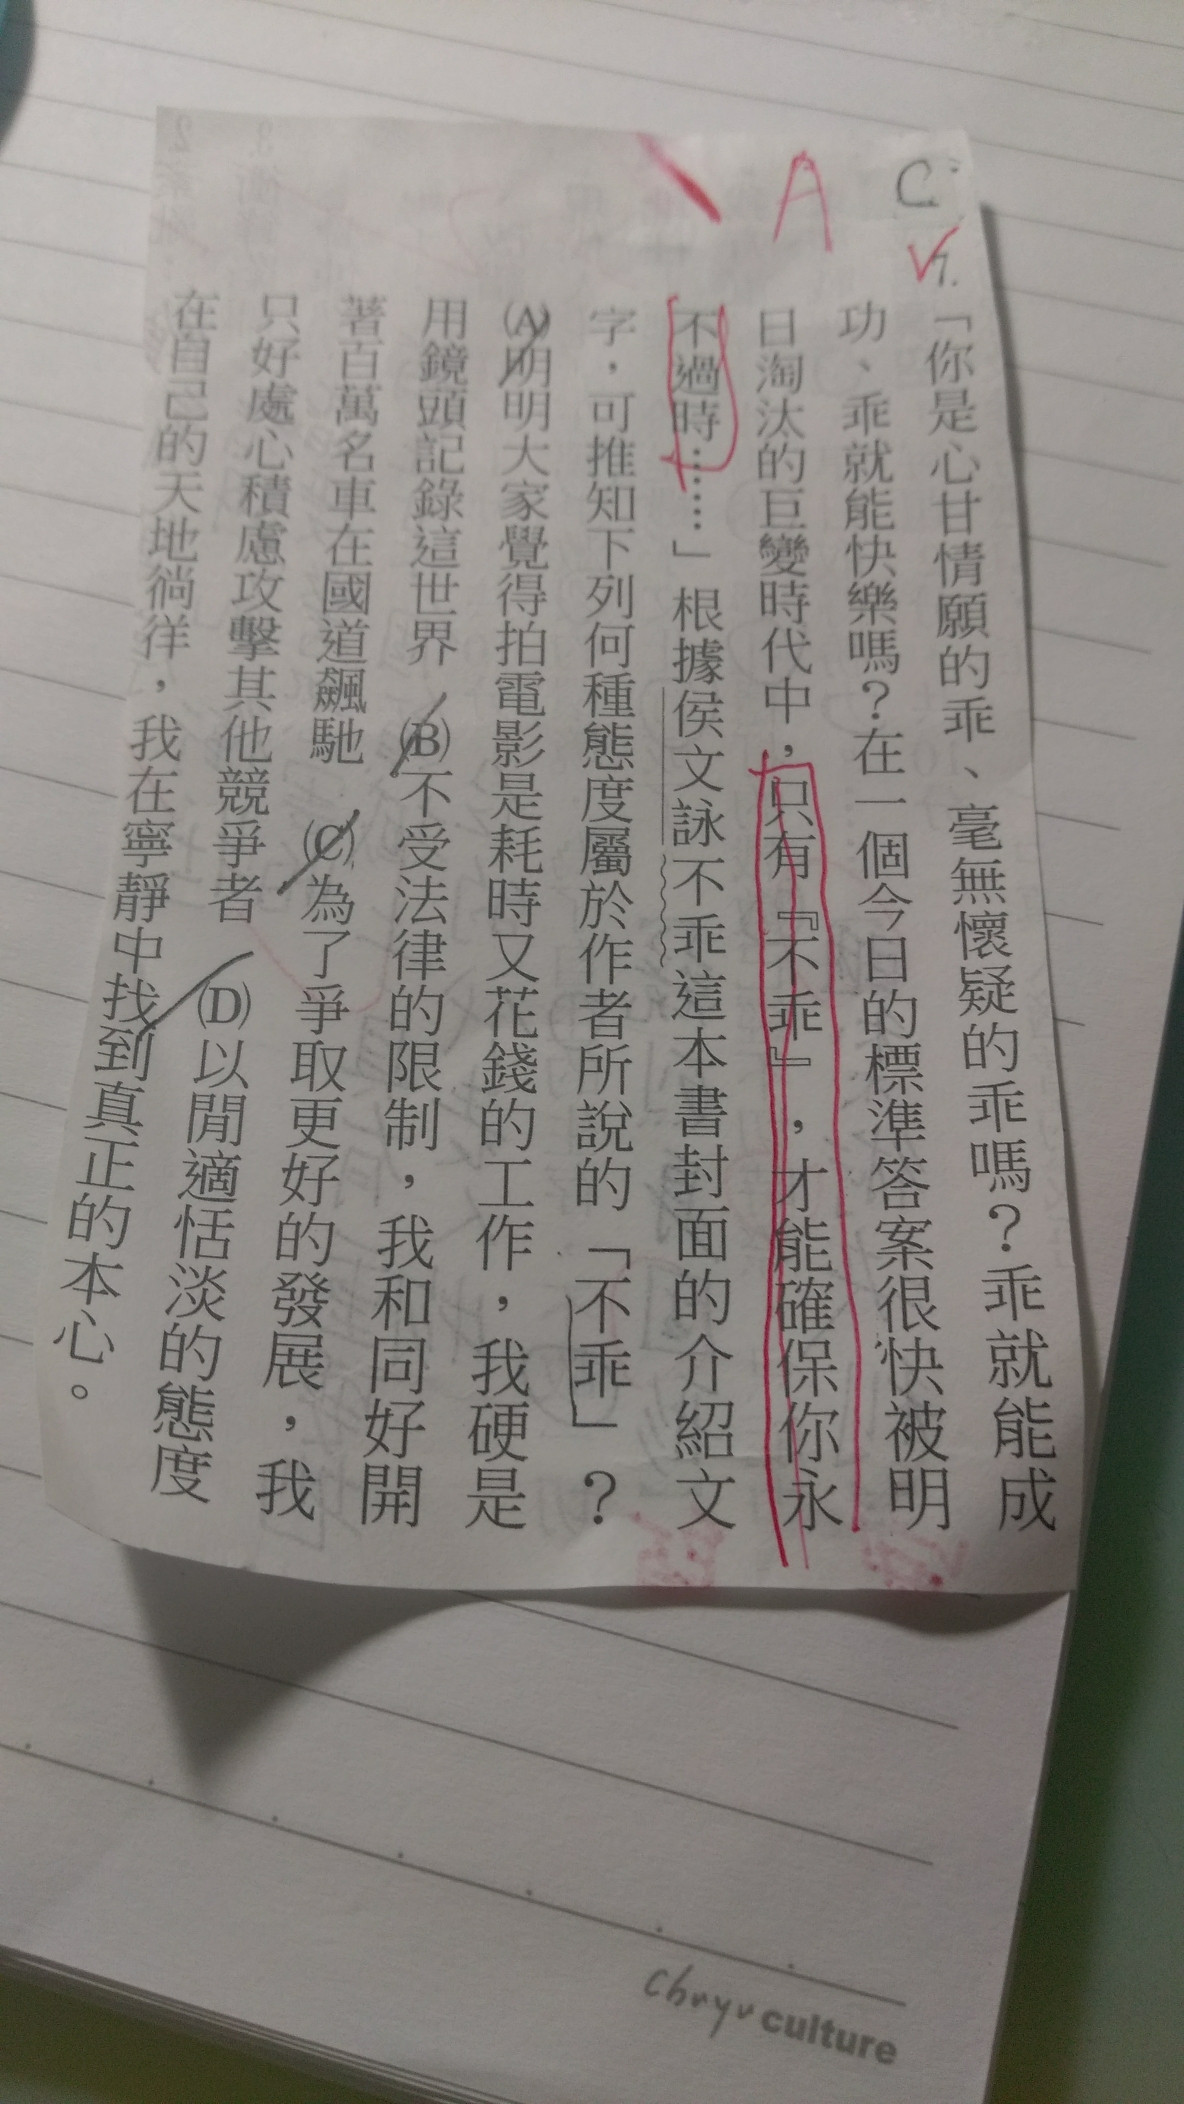 C
A
7.
「你是心甘情願的乖、毫無懷疑的乖嗎？乖就能成
功、乖就能快樂嗎？在一個今日的標準答案很快被明
日淘汰的巨變時代中，只有『不乖』，才能確保你永
不過時……」根據侯文詠不乖這本書封面的介紹文
字，可推知下列何種態度屬於作者所說的「不乖」？
(A)明明大家覺得拍電影是耗時又花錢的工作，我硬是
用鏡頭記錄這世界 (B)不受法律的限制，我和同好開
著百萬名車在國道飆馳 (C)為了爭取更好的發展，我
只好處心積慮攻擊其他競爭者 (D)以閒適恬淡的態度
在自己的天地徜徉，我在寧靜中找到真正的本心。
culture